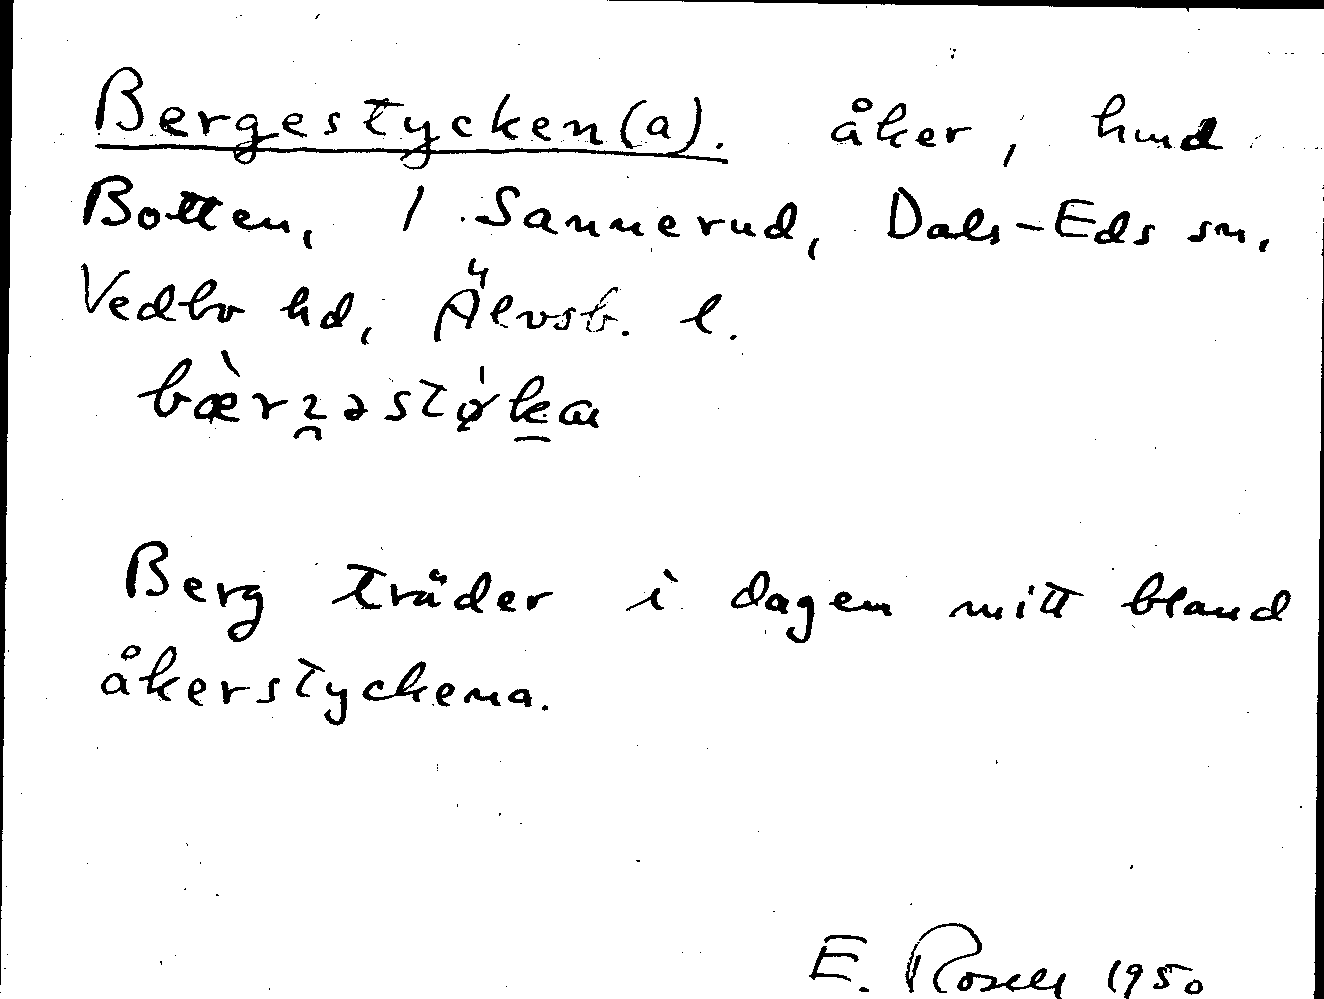 Bergestycken(a). åker, hmd
Botten, 1 Sannerud, Dals-Eds sn.
Vedbo hd, Älvsb. l.
Berg träder i dagen mitt bland
åkerstyckena.
E. Rosell 1950